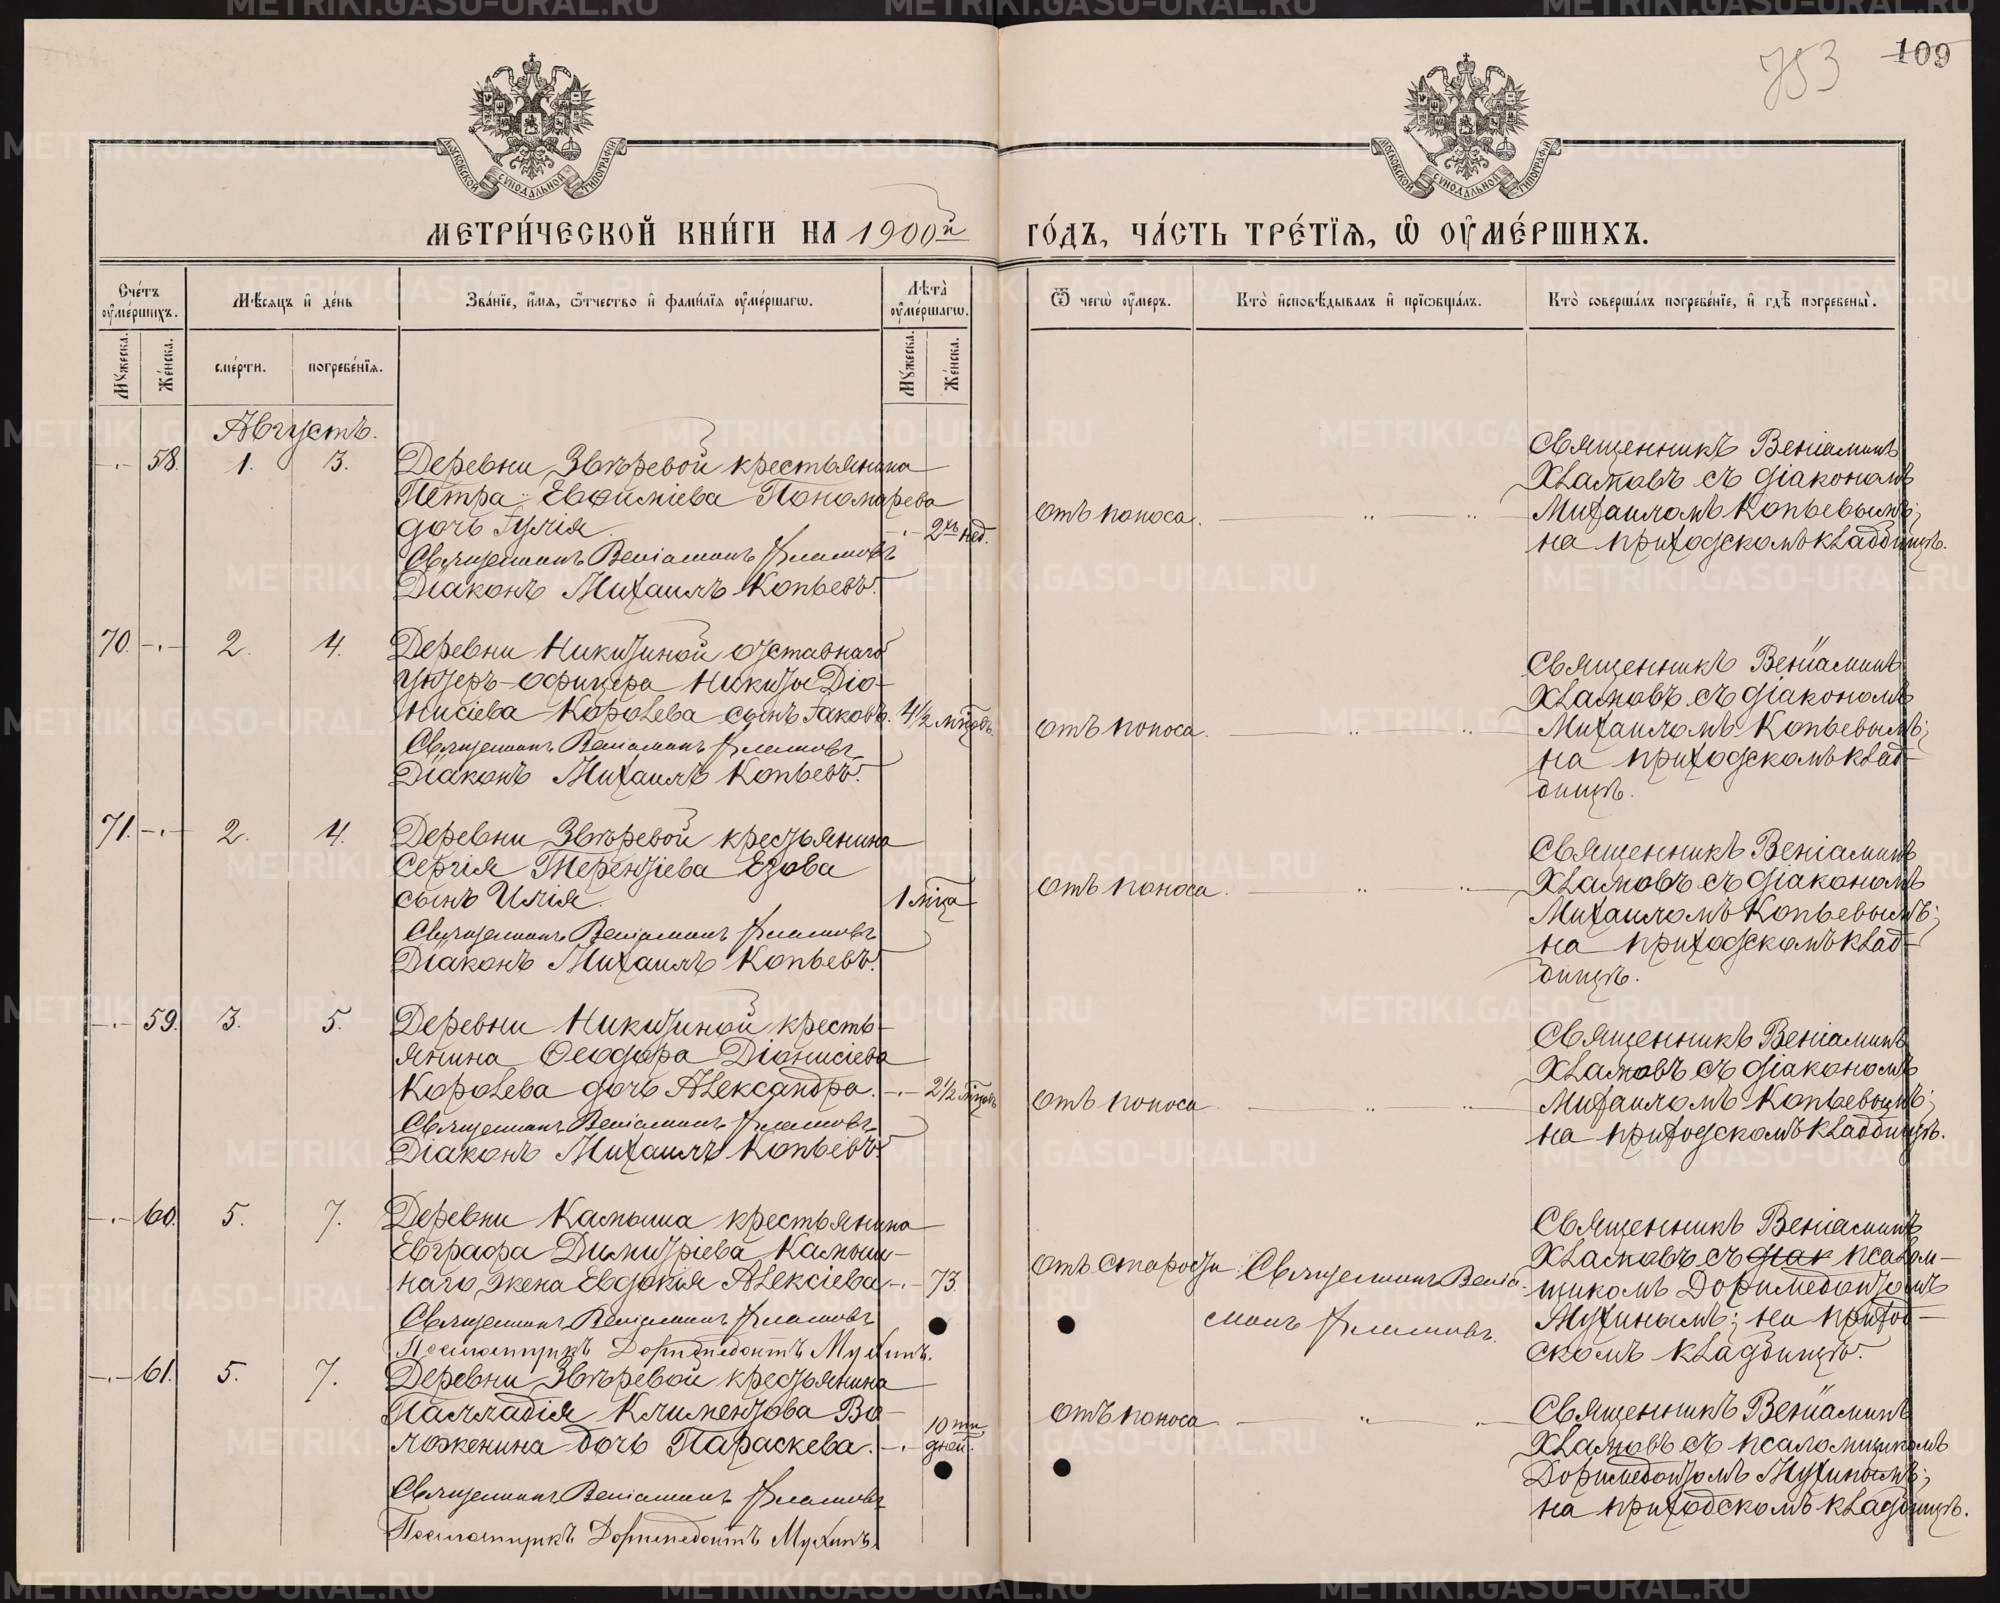 753
109
МОСКОВСКОЙ СѴНОДАЛЬНОЙ ТИПОГРАФІИ
МОСКОВСКОЙ СѴНОДАЛЬНОЙ ТИПОГРАФІИ
МЕТРИ́ЧЕСКОЙ КНИ́ГИ НА 1900й ГО́ДЪ, ЧА́СТЬ ТРЕ́ТІѦ, Ѡ ОУ҆МЕ́РШИХЪ.
Сче́тъ оу҆ме́ршихъ.
Мꙋ́жеска.
Же́нска.
Мѣ́сѧцъ и҆ де́нь
сме́рти.
погребе́нїѧ.
Зва́нїе, и҆́мѧ, ѻ҆́тчество и҆ фами́лїѧ оу҆ме́ршагѡ.
Лѣ́та̀ оу҆ме́ршагѡ.
Мꙋ́жеска.
Же́нска.
Ѿ чегѡ̀ оу҆́меръ.
Кто̀ и҆сповѣ́дывалъ и҆ прїѡбща́лъ.
Кто̀ соверша́лъ погребе́нїе, и҆ гдѣ̀ погребены̀.
Августъ.
-·- 58. 1. 3. Деревни Звѣревой крестьянина
Петра Евѳиміева Пономарева
дочь Іулія. -·- 2хъ нед.
Священникъ Веніаминъ Хламовъ
Діаконъ Михаилъ Копьевъ.
отъ поноса.
Священникъ Веніаминъ
Хламовъ съ діакономъ
Михаиломъ Копьевымъ;
на приходскомъ кладбищѣ.
70. -·- 2. 4. Деревни Никитиной отставнаго
унтеръ-офицера Никиты Діо-
нисіева Королева сынъ Іаковъ. 4½ мѣцовъ.
Священникъ Веніаминъ Хламовъ
Діаконъ Михаилъ Копьевъ.
отъ поноса.
Священникъ Веніаминъ
Хламовъ съ діакономъ
Михаиломъ Копьевымъ;
на приходскомъ клад-
бищѣ.
71. -·- 2. 4. Деревни Звѣревой крестьянина
Сергія Терентіева Езова
сынъ Илія. 1 мѣца
Священникъ Веніаминъ Хламовъ
Діаконъ Михаилъ Копьевъ.
отъ поноса.
Священникъ Веніаминъ
Хламовъ съ діакономъ
Михаиломъ Копьевымъ;
на приходскомъ клад-
бищѣ.
-·- 59. 3. 5. Деревни Никитиной кресть-
янина Ѳеодора Діонисіева
Королева дочь Александра. -·- 2½ мѣцовъ
Священникъ Веніаминъ Хламовъ
Діаконъ Михаилъ Копьевъ.
отъ поноса
Священникъ Веніаминъ
Хламовъ съ діакономъ
Михаиломъ Копьевымъ;
на приходскомъ кладбищѣ.
-·- 60. 5. 7. Деревни Камыша крестьянина
Евграфа Димитріева Камыш-
наго жена Евдокія Алексіева -·- 73.
Священникъ Веніаминъ Хламовъ
Псаломщикъ Доримедонтъ Мухинъ.
отъ старости
Священникъ Веніа-
минъ Хламовъ.
Священникъ Веніаминъ
Хламовъ съ діак псалом-
щикомъ Доримедонтомъ
Мухинымъ; на приход-
скомъ кладбищѣ.
-·- 61. 5. 7. Деревни Звѣревой крестьянина
Палладія Климентова Во-
ложенина дочь Параскева. -·- 10ти дней.
Священникъ Веніаминъ Хламовъ
Псаломщикъ Доримедонтъ Мухинъ.
отъ поноса
Священникъ Веніаминъ
Хламовъ съ псаломщикомъ
Доримедонтомъ Мухинымъ;
на приходскомъ кладбищѣ.
METRIKI.GASO-URAL.RU